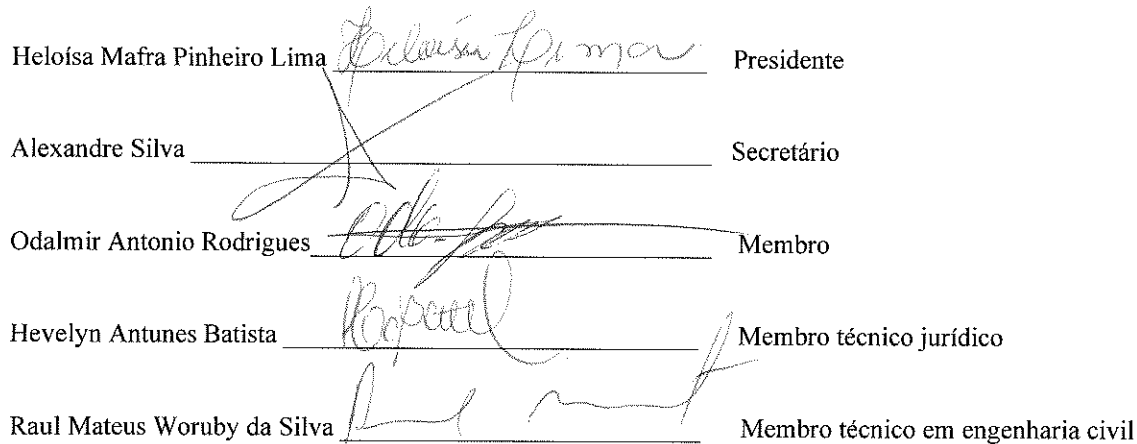 Heloísa Mafra Pinheiro Lima Heloisa Lima Presidente
Alexandre Silva Secretário
Odalmir Antonio Rodrigues Membro
Hevelyn Antunes Batista Membro técnico jurídico
Raul Mateus Woruby da Silva Membro técnico em engenharia civil